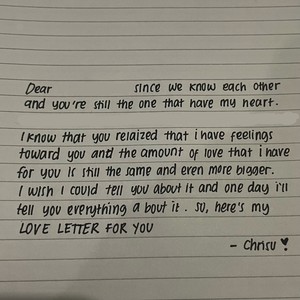 Dear since we know each other
and you're still the one that have my heart.
I know that you relaized that i have feelings
toward you and the amount of love that i have
for you is still the same and even more bigger.
I wish I could tell you about it and one day i'll
tell you everything about it. so, here's my
LOVE LETTER FOR YOU
- Chrisu ♥